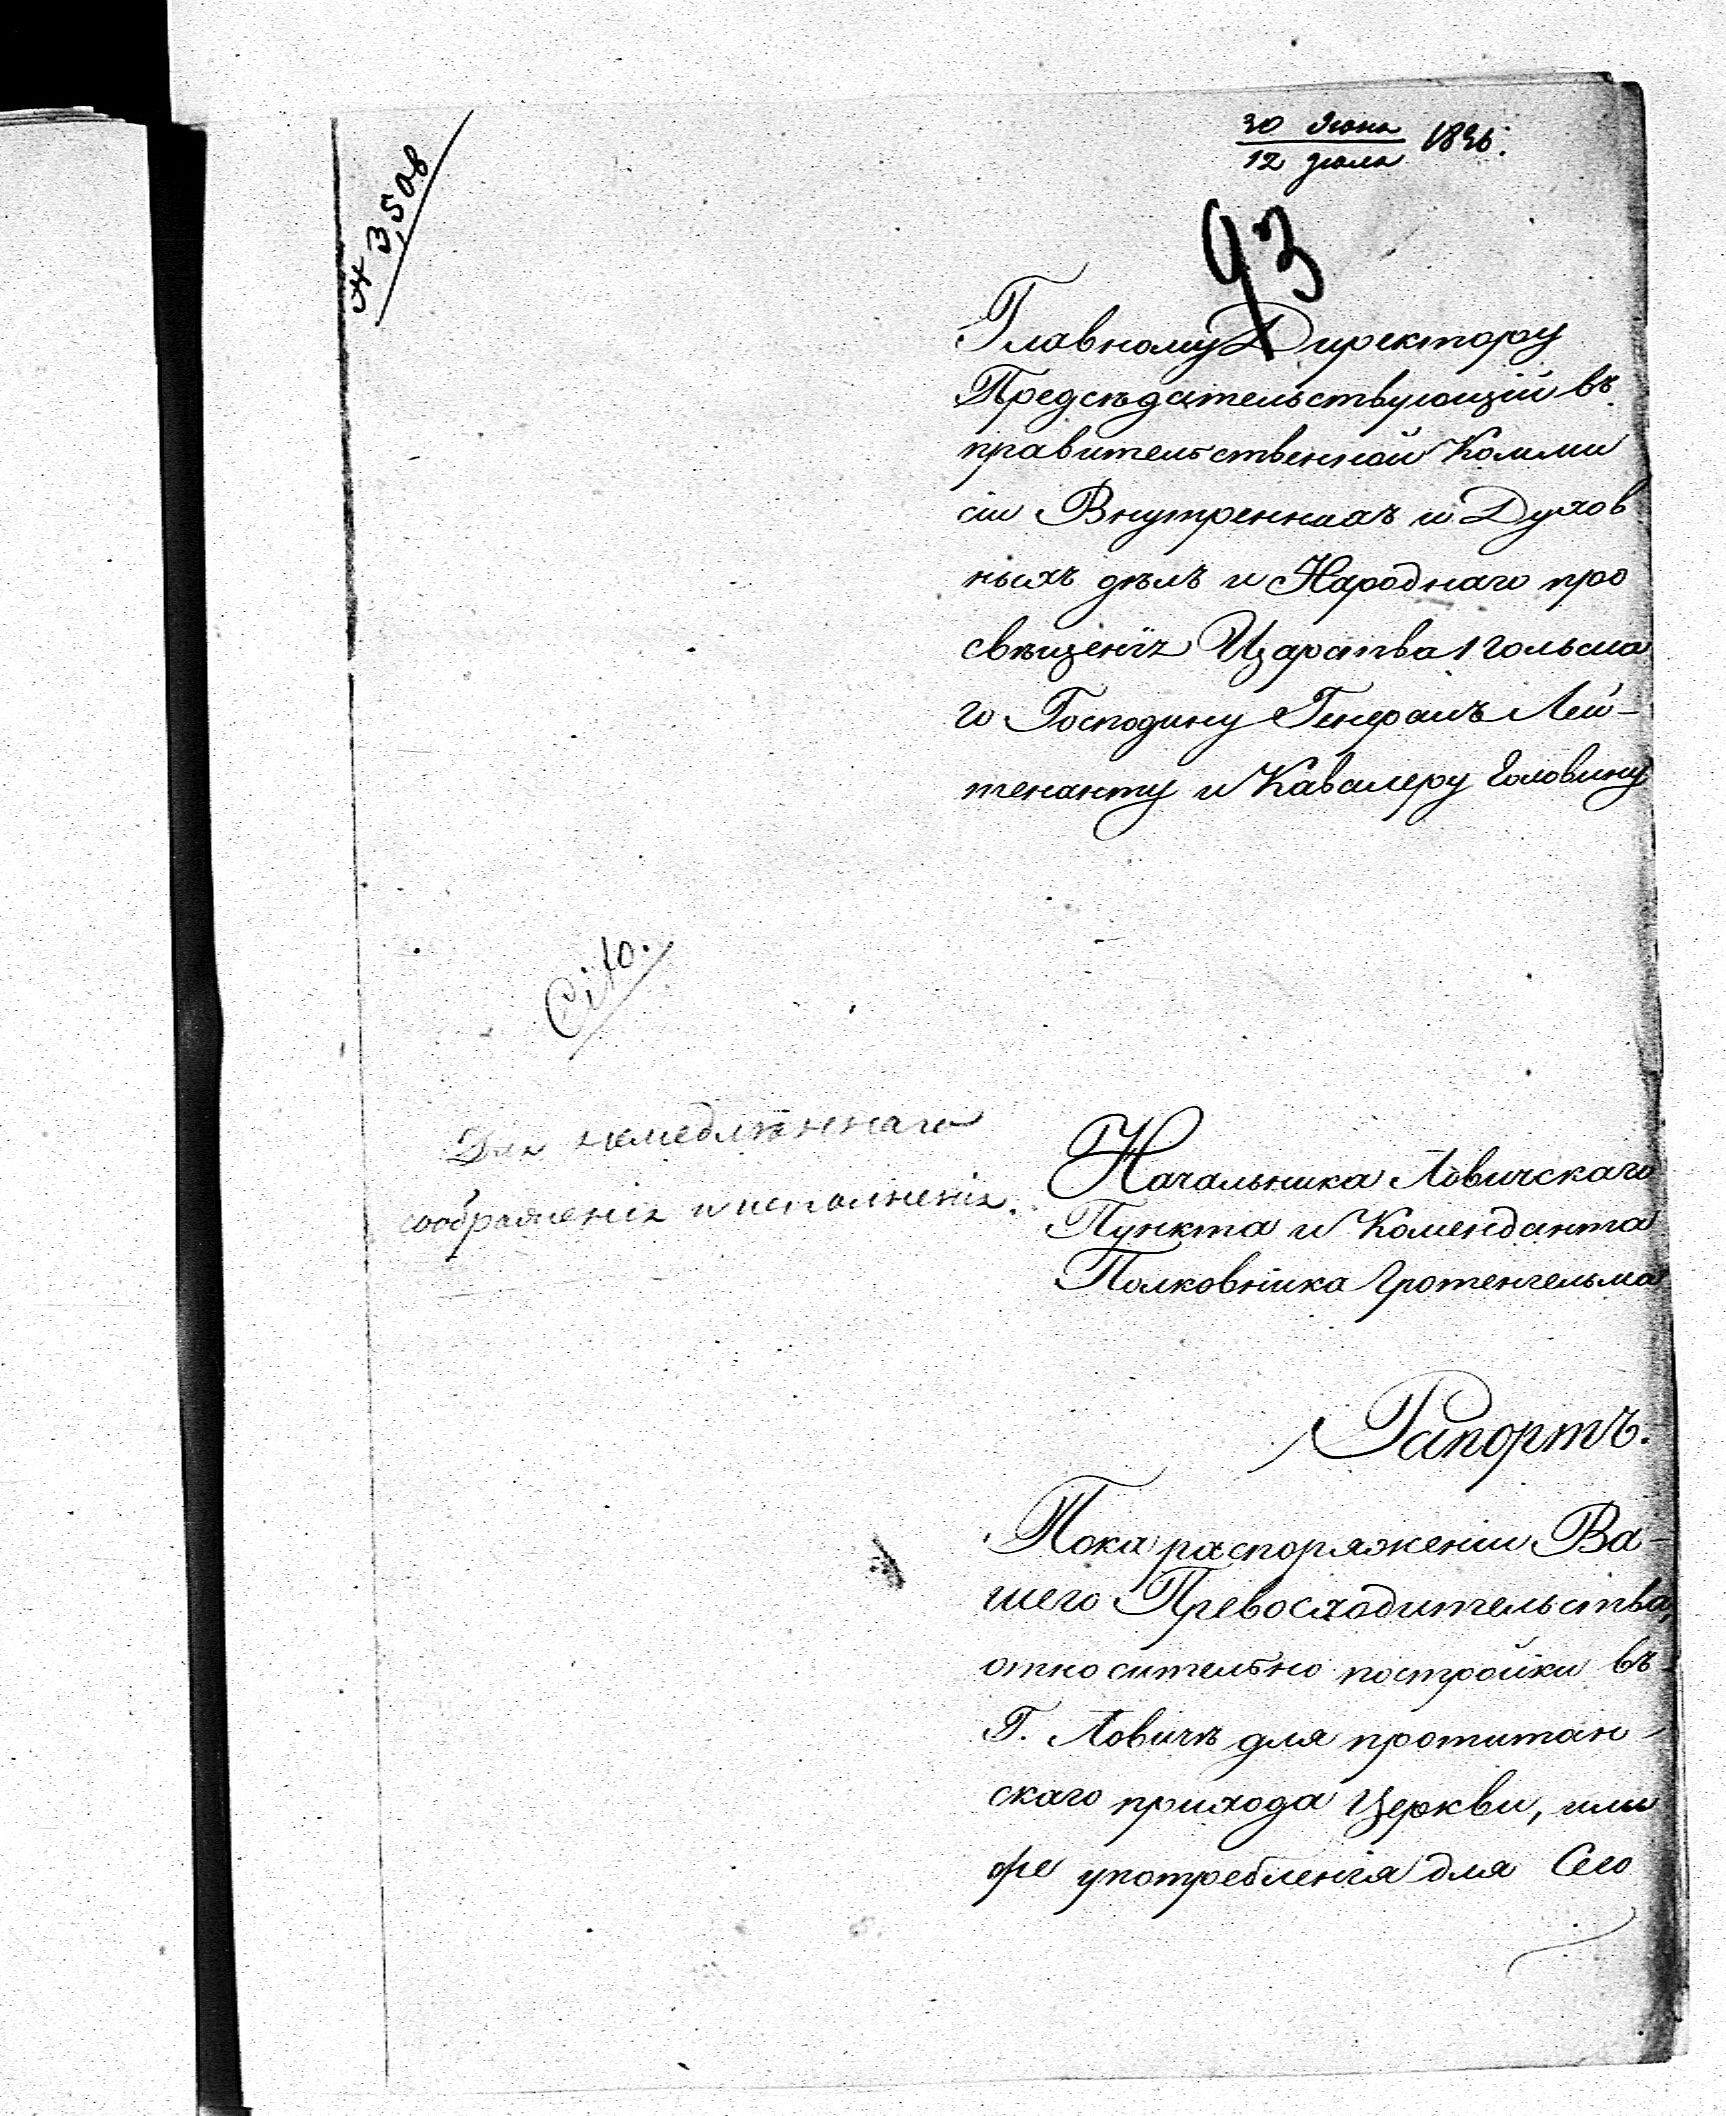 30 Июня
12 Июля 1836.
№ 3,508
93
Главному Директору
Предсѣдательствующій въ
правительственной Комми
сіи Внутреннихъ и Духов
ныхъ дѣлъ и Народнаго про
свѣщенія Царства Польска
го Господину Генералъ Лей-
тенанту и Кавалеру Головину
Cito.
Для немедлѣннаго
соображенія и исполненія.
Начальника Ловичскаго
Пункта и Коменданта
Полковника Гротенгельма
Рапортъ.
Пока распоряженіи Ва-
шего Превосходительства,
относительно постройки въ
Г. Ловичѣ для протитан-
скаго прихода Церкви, или
употребленія для Сего